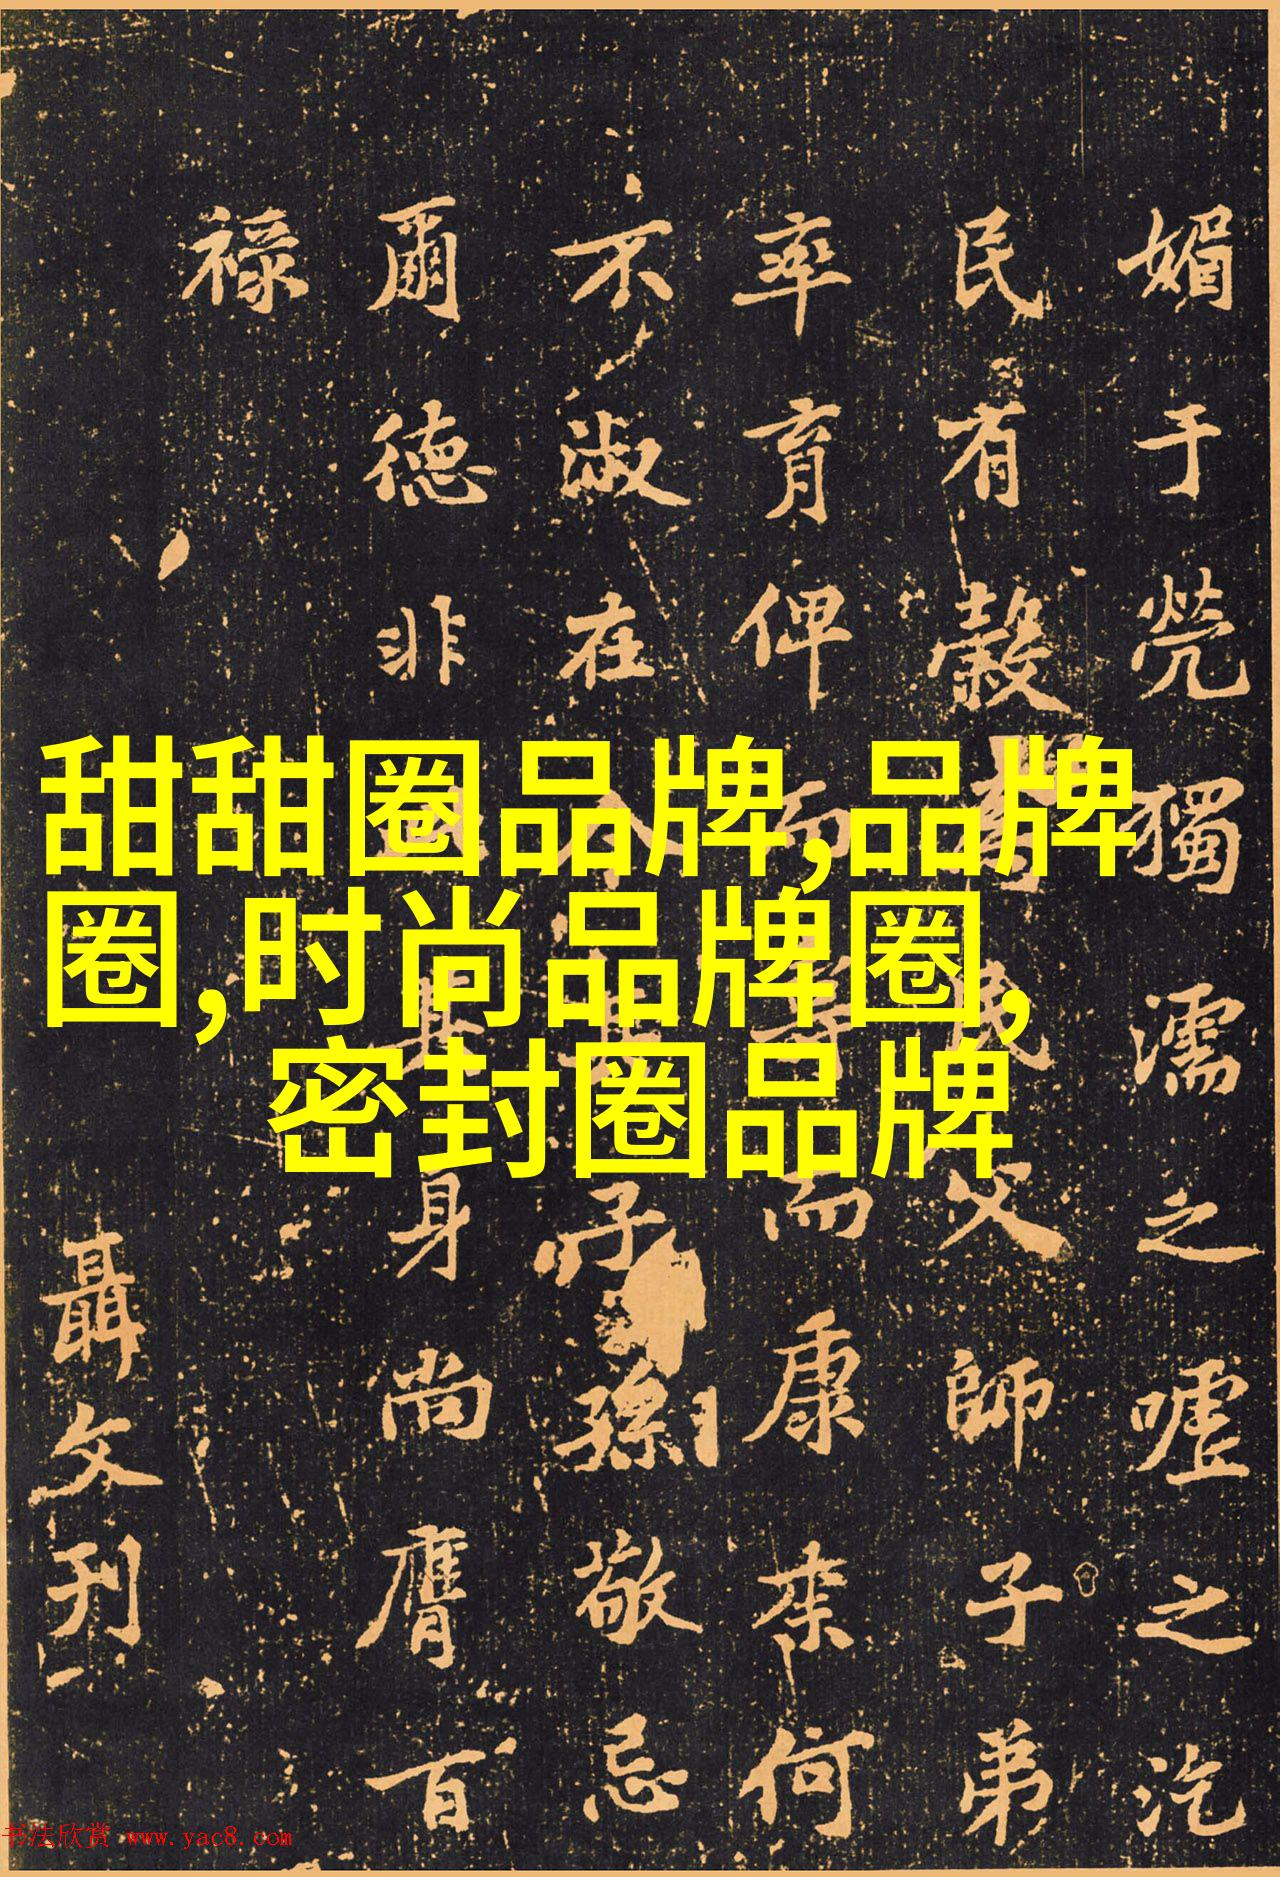 媚于煢獨濡之嘘之汔
民有穀民父師子弟
率育俾而壽而康来何
不淑在子孫敬忌
爾德非其身尚膺百
禄
聶文刊
甜甜圈品牌,品牌
圈,时尚品牌圈,
密封圈品牌
书法欣赏 www.yac8.com